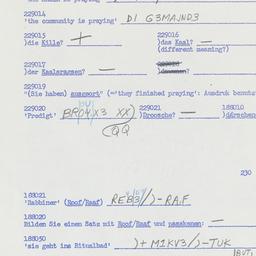 229014
'the community is praying' DI G3MAJND3
229015
)die Kille? +
229016
)das Kaal? —
(different meaning?)
229017
)der Kaalsrassen? —
229019
"(Sie haben) ausgeort" (='they finished praying': Ausdruk benutz
229020
'Predigt' BRO4X3 XX)
QQ
229021
)Droosche? —
188010
)dürschen
230
188021
'Rabbiner' (Roof/Raaf) REB3//)-RA.F
188020
Bilden Sie einen Satz mit Roof/Raaf und paaskenen: —
188050
'sie geht ins Ritualbad' )+ M1KV3/)-TUK